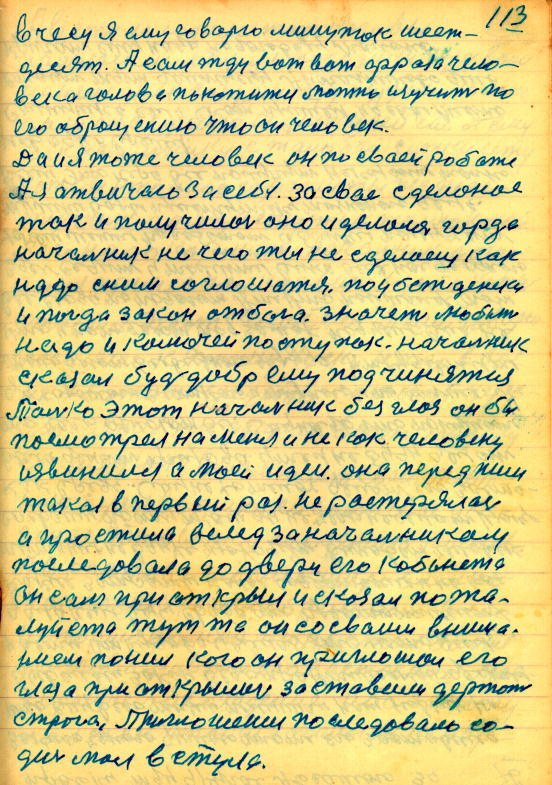 113
в чесу я ему говорю минуток шест-
десят. А сам жду вот вот
века голова покотити могть изучит по
его оброщению что он человек.
Да и я тоже человек он по своей роботе
А я отвичаю за себя. За свае сделоное
так и получилос оно и делола, гордо
началник не чего ты не сделоеш как
надо сним соглошатя,
и тогда закон от бога. Значет любит
надо и комочей поступок. началник
сказал буд добр ему подчинятия
Толко этот началник без глоз он бы
посмотрел на меня и не как человеку
извинился а моей идеи. она перед ним
такая в первый раз. не ростерялас
а простила вслед за началником
последовала до двери его кобинета
Он сам приоткрыл и сказал пожа-
луйста тут та он со своим внима-
нием понял кого он приглошол его
глаза приоткрылис заставели держат
строга, Приглошении последовало со-
дис мол в стула.